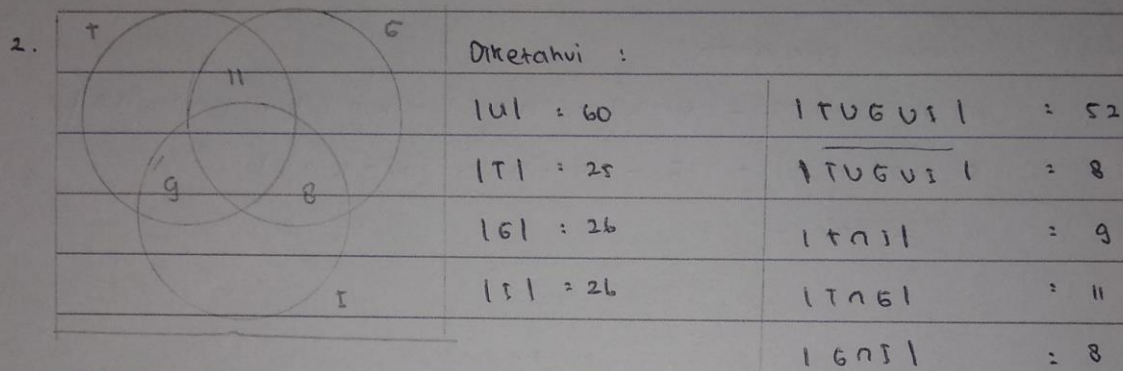 2.
T G
11
9 8
I
Diketahui :
|U| = 60
|T| = 25
|G| = 26
|I| = 26
|TUGUI| = 52
|T̅U̅G̅U̅I̅| = 8
|T∩I| = 9
|T∩G| = 11
|G∩I| = 8